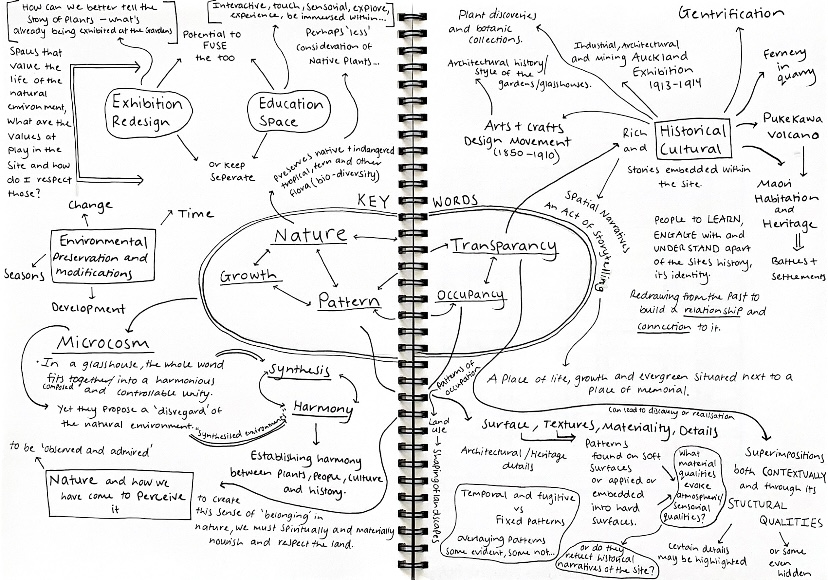 How can we better tell the
story of plants - what's
already being exhibited at the Gardens
Interactive, touch, sensorial, explore,
experience, be immersed within...
Spaces that
value the
life of the
natural
environment,
What are the
values at
play in the
site and how
do I respect
those?
Potential to
FUSE
the too
Perhaps 'less'
consideration of
Native Plants...
Exhibition
Redesign
Education
Space
or keep
seperate
Preserves native + endangered
tropical, fern and other
flora (bio-diversity)
Change
Time
Environmental
Preservation and
modifications
Seasons
Development
KEY WORDS
Nature
Growth
Pattern
Transparancy
Occupancy
Microcosm
· In a glasshouse, the whole world
fits together into a harmonious
composed and controllable unity.
Yet they propose a 'disregard' of
the natural environment.
"Synthesised environment"
to be 'observed and admired'
Nature and how we
have come to perceive
it
Synthesis
Harmony
Establishing harmony
between plants, people, culture
and history.
to create
this sense of 'belonging' in
nature, we must spiritually and materially
nourish and respect the land.
Plant discoveries
and botanic
collections.
Architectural history/
style of the
gardens/glasshouses.
Industrial, Architectural
and mining Auckland
Exhibition
1913-1914
Gentrification
Fernery
in
quarry
Arts + crafts
Design Movement
(1850-1910)
Rich
and
Historical
Cultural
Stories embedded within
the site.
Pukekawa
Volcano
Maori
Habitation
and
Heritage
Battles +
Settlements
Spatial Narratives
An Act of Storytelling
People to LEARN,
ENGAGE with and
UNDERSTAND apart
of the sites history,
its identity.
Redrawing from the past to
build a relationship and
connection to it.
A Place of life, growth and evergreen situated next to a
place of memorial.
Patterns of
occupation
Land
use
Shaping of landscapes
can lead to discovery or realisation
Surface, Textures, Materiality, Details
Architectural / Heritage
details
Patterns
found on soft
surfaces
or applied or
embedded
into hard
surfaces.
What
material
qualities
evoke
atmospheric/
sensorial
qualities?
Superimpositions
both CONTEXTUALLY
and through its
STUCTURAL
QUALITIES
Temporal and fugitive
vs
Fixed patterns
overlaying patterns
some evident, some not...
or do they
reflect historical
narratives of the site?
Certain details
may be highlighted
or some
even
hidden